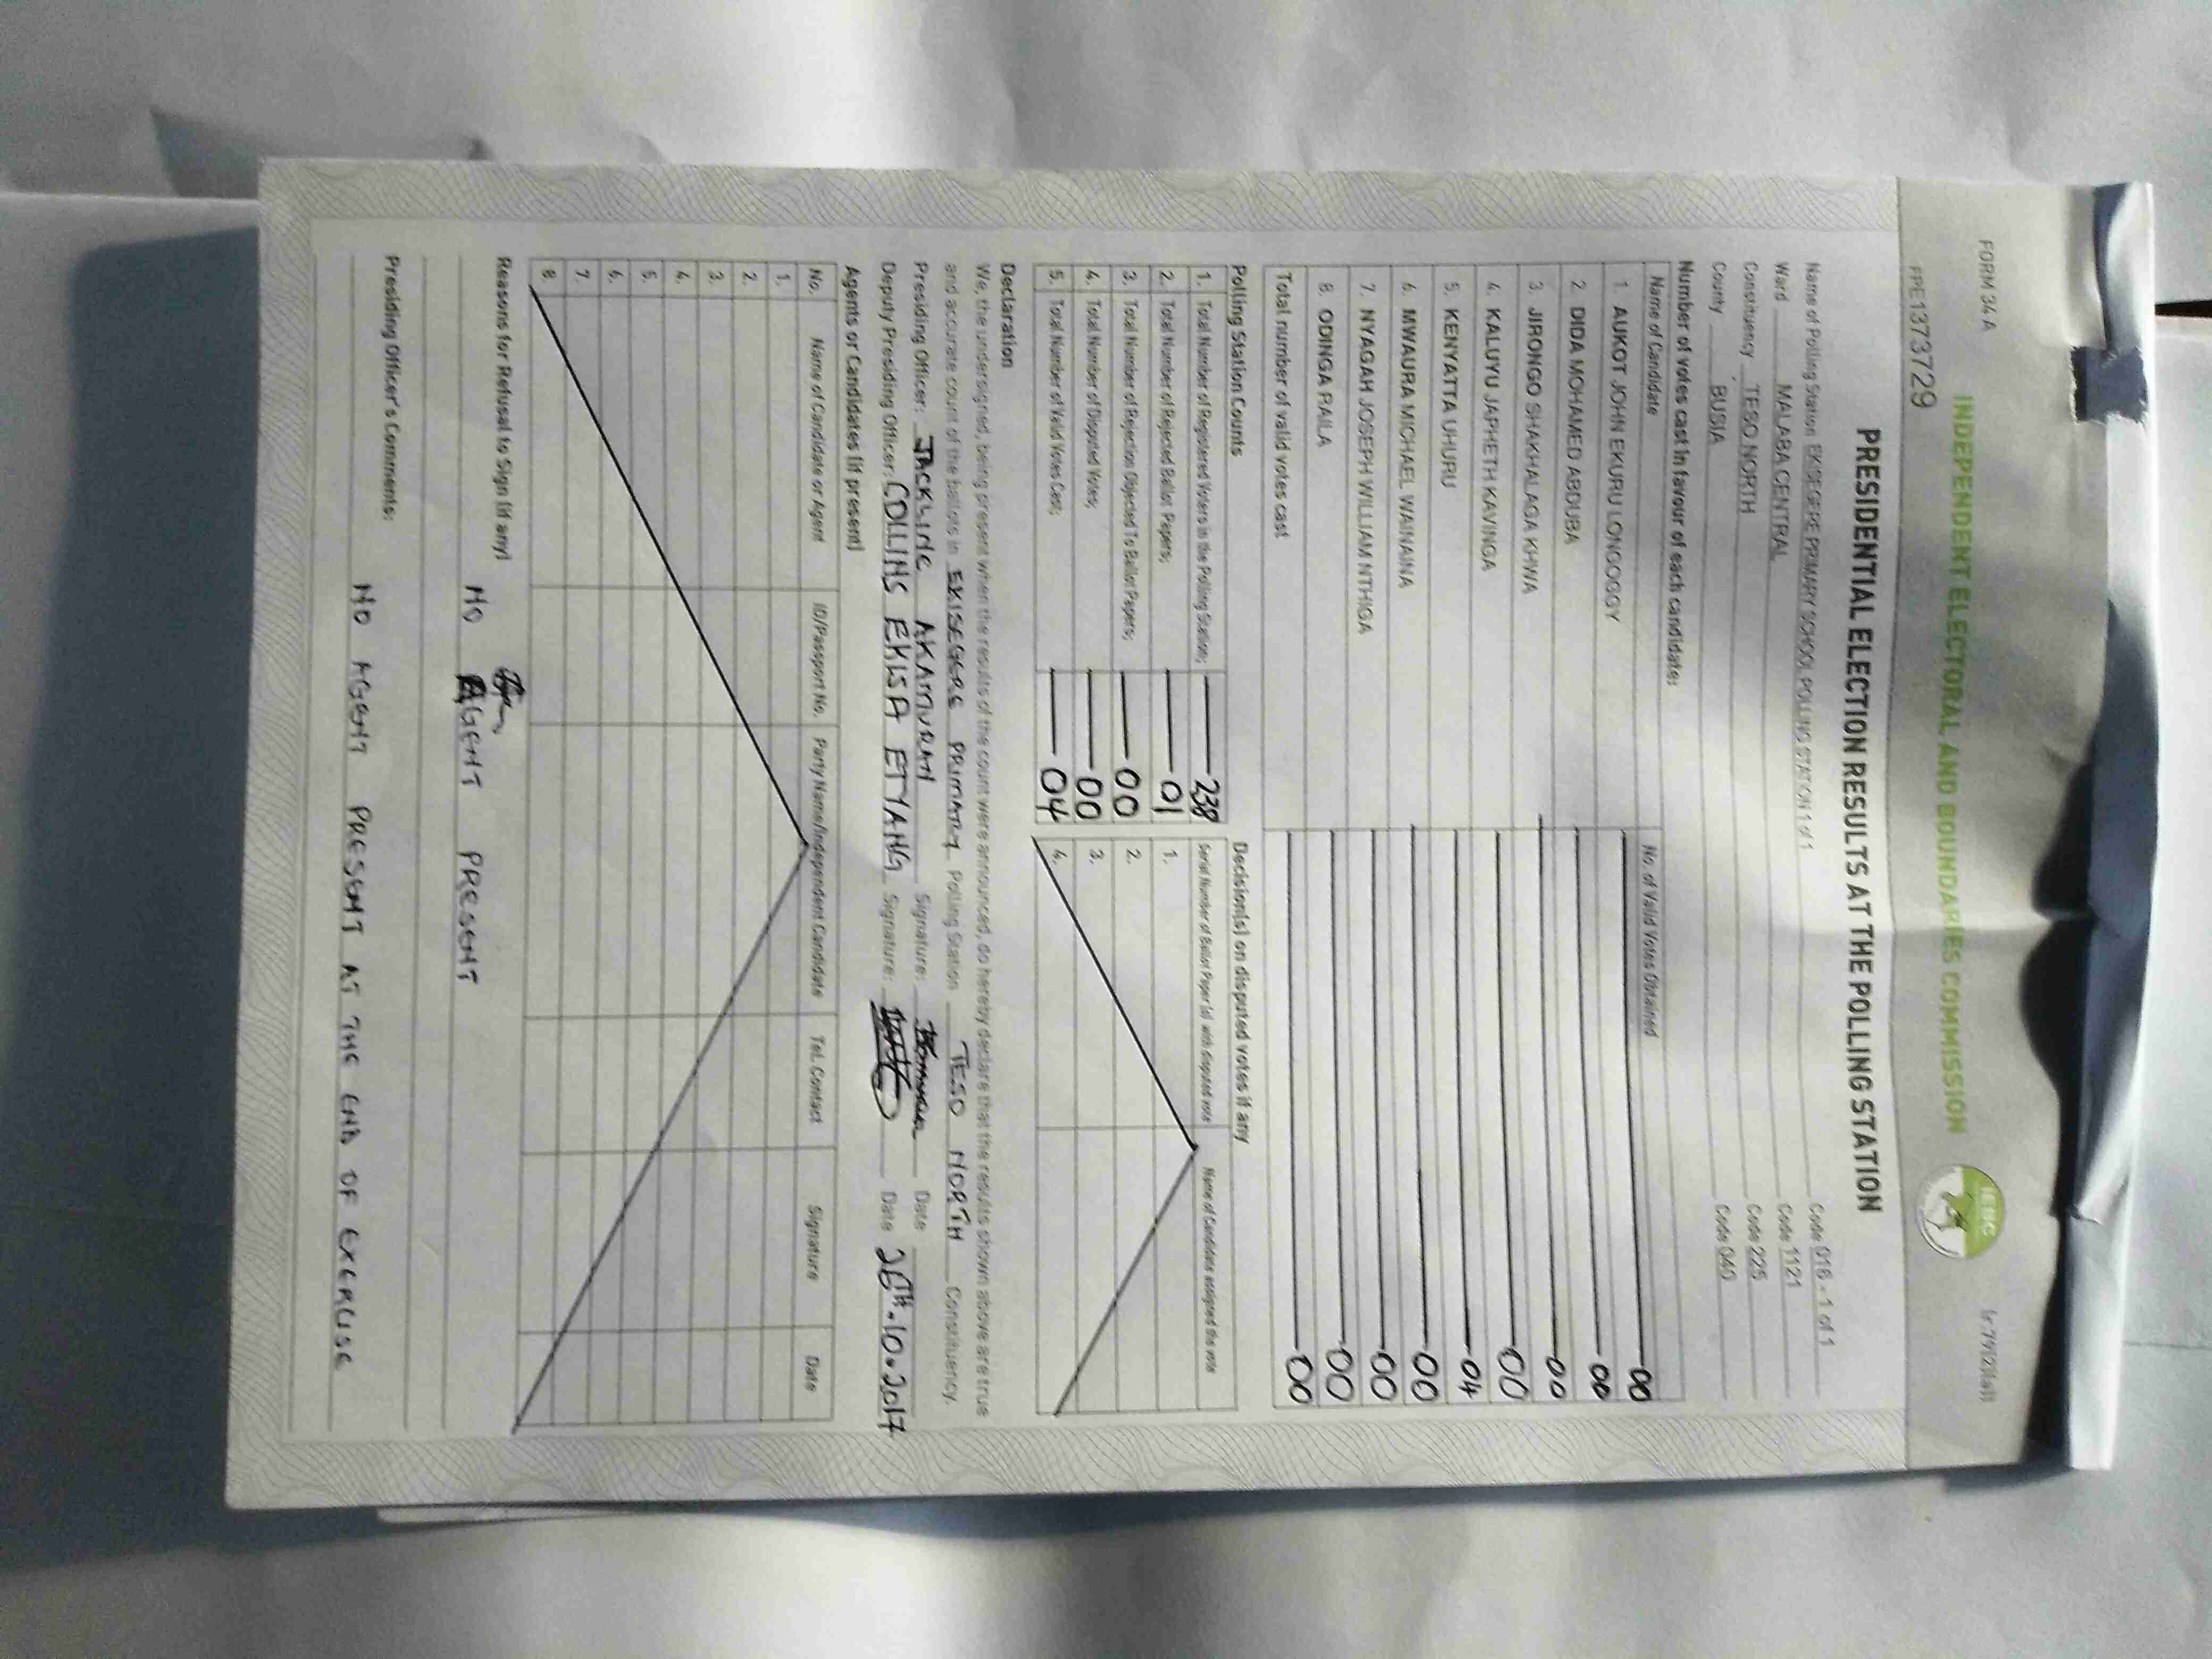 FORM 34 A
PPE1373729
lr.79(2)(a)]
INDEPENDENT ELECTORAL AND BOUNDARIES COMMISSION
IEBC
PRESIDENTIAL ELECTION RESULTS AT THE POLLING STATION
Name of Polling Station EKISEGERE PRIMARY SCHOOL POLLING STATION 1 of 1 Code 016 - 1 of 1
Ward MALABA CENTRAL Code 1121
Constituency TESO NORTH Code 225
County BUSIA Code 040
Number of votes cast in favour of each candidate:
Name of Candidate No. of Valid Votes Obtained
1. AUKOT JOHN EKURU LONGOGGY 00
2. DIDA MOHAMED ABDUBA 00
3. JIRONGO SHAKHALAGA KHWA 00
4. KALUYU JAPHETH KAVINGA 00
5. KENYATTA UHURU 04
6. MWAURA MICHAEL WAINAINA 00
7. NYAGAH JOSEPH WILLIAM NTHIGA 00
8. ODINGA RAILA 00
Total number of valid votes cast 00
Polling Station Counts Decision(s) on disputed votes if any
1. Total Number of Registered Voters in the Polling Station; 238 Serial Number of Ballot Paper(s) with disputed vote Name of Candidate assigned the vote
2. Total Number of Rejected Ballot Papers; 01 1.
3. Total Number of Rejection Objected To Ballot Papers; 00 2.
4. Total Number of Disputed Votes; 00 3.
5. Total Number of Valid Votes Cast; 04 4.
Declaration
We, the undersigned, being present when the results of the count were announced, do hereby declare that the results shown above are true
and accurate count of the ballots in EKISEGERE PRIMARY Polling Station TESO NORTH Constituency.
Presiding Officer: JACKLINE AKAMURAN Signature: Date
Deputy Presiding Officer: COLLINS EKISA ETYANG Signature: Date 26TH.10.2017
Agents or Candidates (if present)
No. Name of Candidate or Agent ID/Passport No. Party Name/Independent Candidate Tel. Contact Signature Date
1.
2.
3.
4.
5.
6.
7.
8.
Reasons for Refusal to Sign (if any)
NO AGENT PRESENT
Presiding Officer's Comments:
NO AGENT PRESENT AT THE END OF EXERCISE